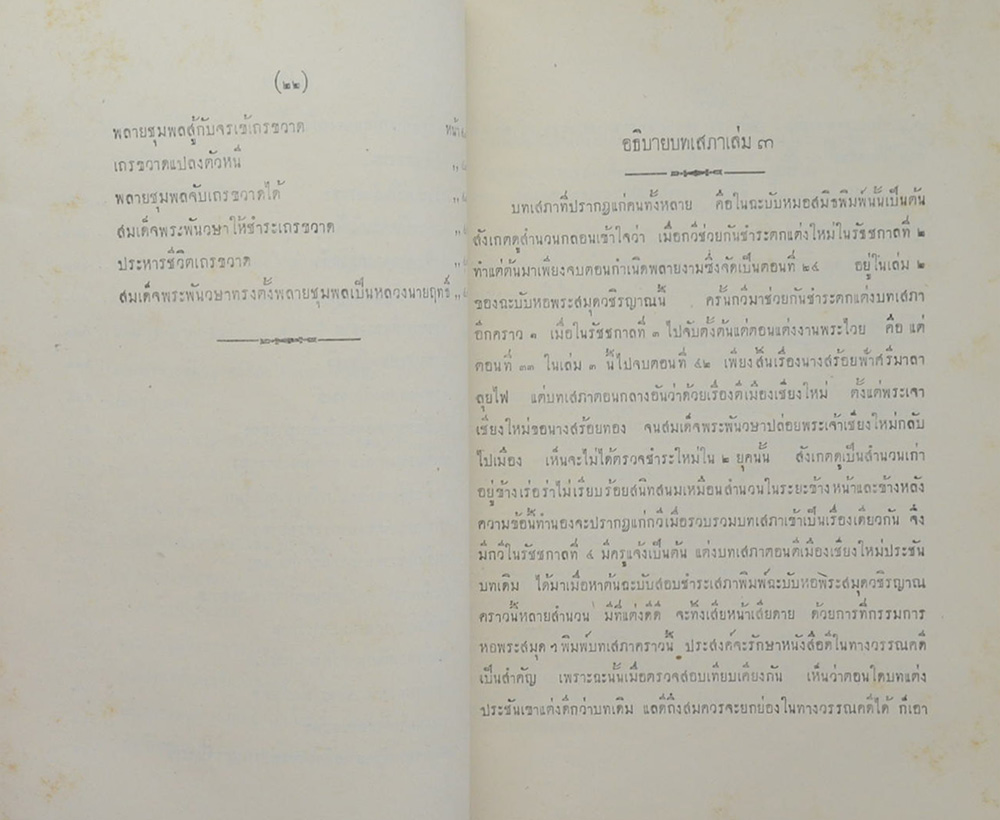 (๒๒)
พลายชุมพลสู้กับจรเข้เถรขวาด หน้า
เถรขวาดแปลงตัวหนี ,,
พลายชุมพลจับเถรขวาดได้ ,,
สมเด็จพระพันวษาให้ชำระเถรขวาด ,,
ประหารชีวิตเถรขวาด ,,
สมเด็จพระพันวษาทรงตั้งพลายชุมพลเป็นหลวงนายฤทธิ์ ,,
อธิบายบทเสภาเล่ม ๓
บทเสภาที่ปรากฏแก่คนทั้งหลาย คือในฉะบับหมอสมิธพิมพ์นั้นเป็นต้น
สังเกตดูสำนวนกลอนเข้าใจว่า เมื่อกวีช่วยกันชำระตกแต่งใหม่ในรัชชกาลที่ ๒
ทำแต่ต้นมาเพียงจบตอนกำเนิดพลายงามซึ่งจัดเป็นตอนที่ ๒๔ อยู่ในเล่ม ๒
ของฉะบับหอพระสมุดวชิรญาณนี้ ครั้นกวีมาช่วยกันชำระตกแต่งบทเสภา
อีกคราว ๑ เมื่อในรัชชกาลที่ ๓ ไปจับตั้งต้นแต่ตอนแต่งงานพระไวย คือ แต่
ตอนที่ ๓๓ ในเล่ม ๓ นี้ไปจบตอนที่ ๔๒ เพียงสิ้นเรื่องนางสร้อยฟ้าศรีมาลา
ลุยไฟ แต่บทเสภาตอนกลางอันว่าด้วยเรื่องตีเมืองเชียงใหม่ ตั้งแต่พระเจ้า
เชียงใหม่ขอนางสร้อยทอง จนสมเด็จพระพันวษาปล่อยพระเจ้าเชียงใหม่กลับ
ไปเมือง เห็นจะไม่ได้ตรวจชำระใหม่ใน ๒ ยุคนั้น สังเกตดูเป็นสำนวนเก่า
อยู่ข้างเร่อร่าไม่เรียบร้อยสนิทสนมเหมือนสำนวนในระยะข้างหน้าและข้างหลัง
ความข้อนี้ทำนองจะปรากฏแก่กวีเมื่อรวบรวมบทเสภาเข้าเป็นเรื่องเดียวกัน จึง
มีกวีในรัชชกาลที่ ๔ มีครูแจ้งเป็นต้น แต่งบทเสภาตอนตีเมืองเชียงใหม่ประชัน
บทเดิม ได้มาเมื่อหาต้นฉะบับสอบชำระเสภาพิมพ์ฉะบับหอพระสมุดวชิรญาณ
คราวนี้หลายสำนวน มีที่แต่งดีดี จะทิ้งเสียหน้าเสียดาย ด้วยการที่กรรมการ
หอพระสมุด ฯ พิมพ์บทเสภาคราวนี้ ประสงค์จะรักษาหนังสือดีในทางวรรณคดี
เป็นสำคัญ เพราะฉะนั้นเมื่อตรวจสอบเทียบเคียงกัน เห็นว่าตอนใดบทแต่ง
ประชันเขาแต่งดีกว่าบทเดิม แลดีถึงสมควรจะยกย่องในทางวรรณคดีได้ ก็เอา